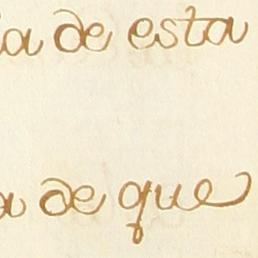 a de esta
a de que